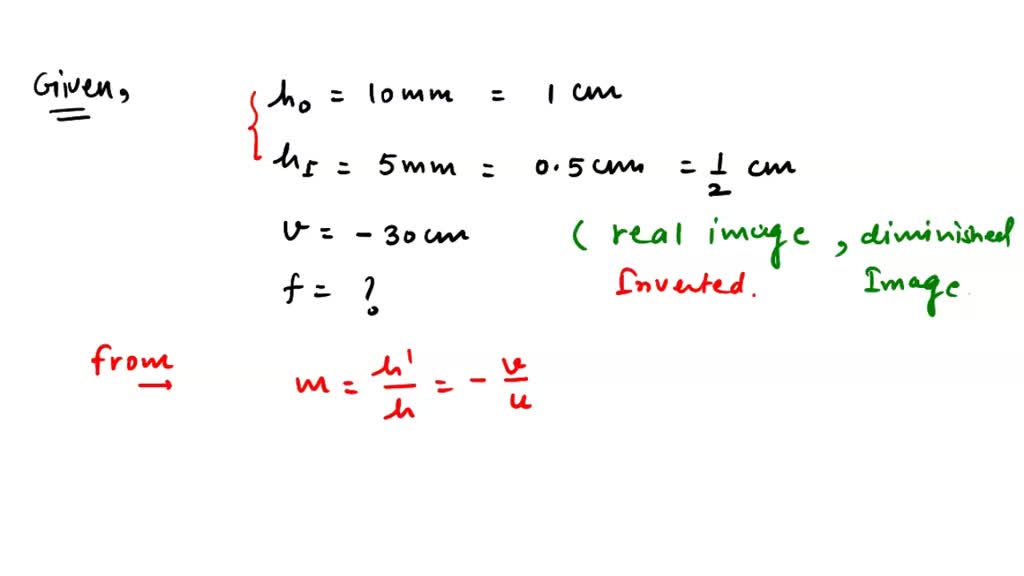 Given,
h₀ = 10mm = 1 cm
h_I = 5mm = 0.5cm = 1/2 cm
v = -30cm (real image, diminished
f = ? Inverted. Image
from → m = h'/h = - v/u